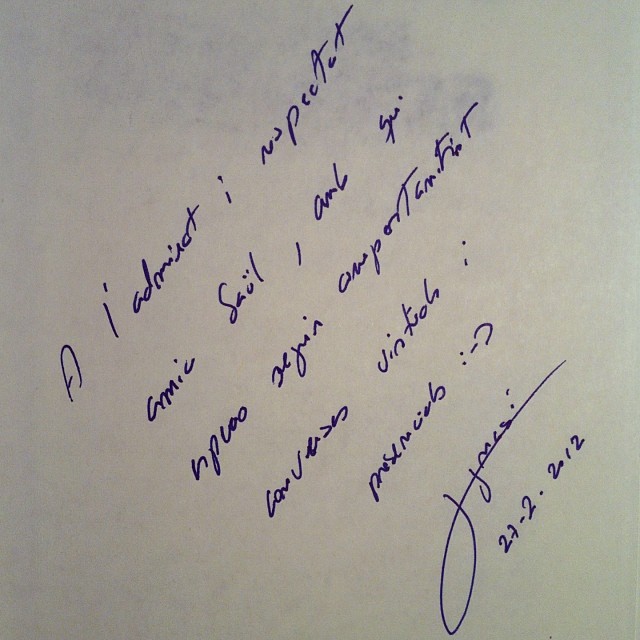 A l'admirat i respectat
amic Saül, amb qui
espero seguir compartint
converses virtuals i
presencials :-)
27-2-2012